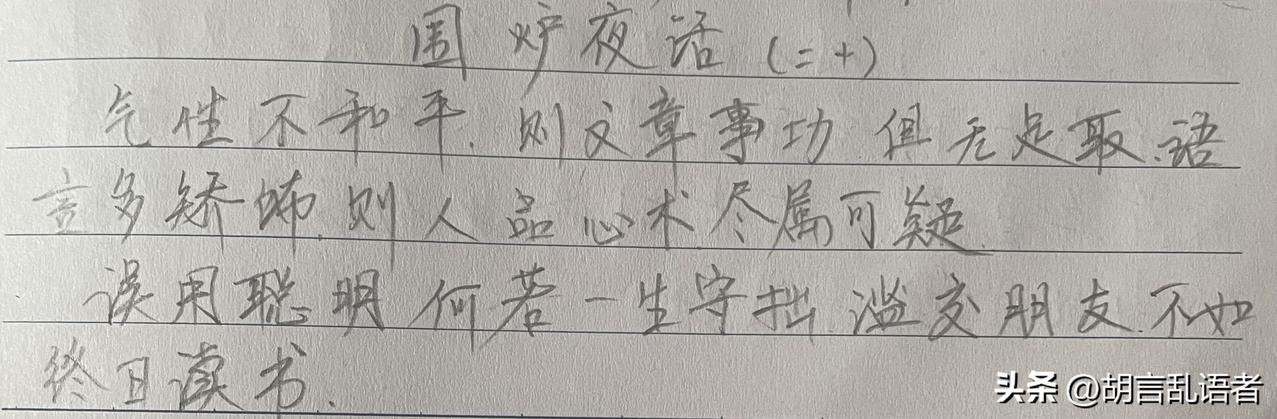 围炉夜话(二十)
气性不和平,则文章事功俱无足取.语
言多矫饰,则人品心术尽属可疑.
误用聪明何若一生守拙.滥交朋友.不如
终日读书.
头条 @胡言乱语者